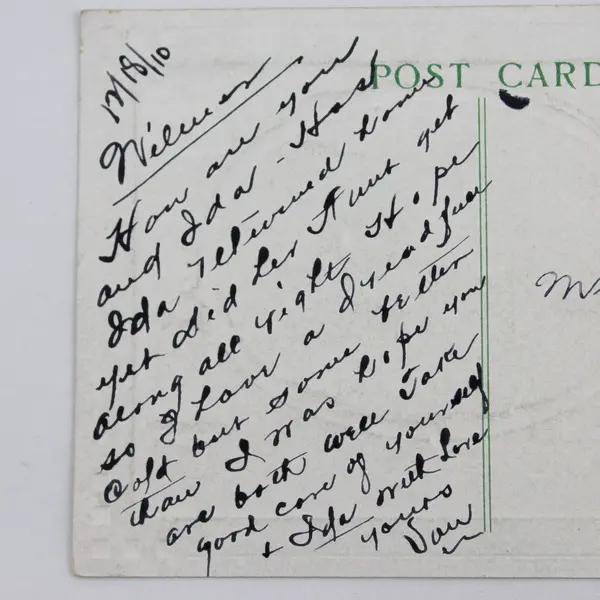 POST CARD
12/18/10
Wilmer
How are you
and Ida - Has
Ida returned home
yet did her Aunt get
along all right Hope
so I have a dreadful
Cold but some better
than I was hope you
are both well Take
good care of yourself
+ Ida with Love
yours
Dau